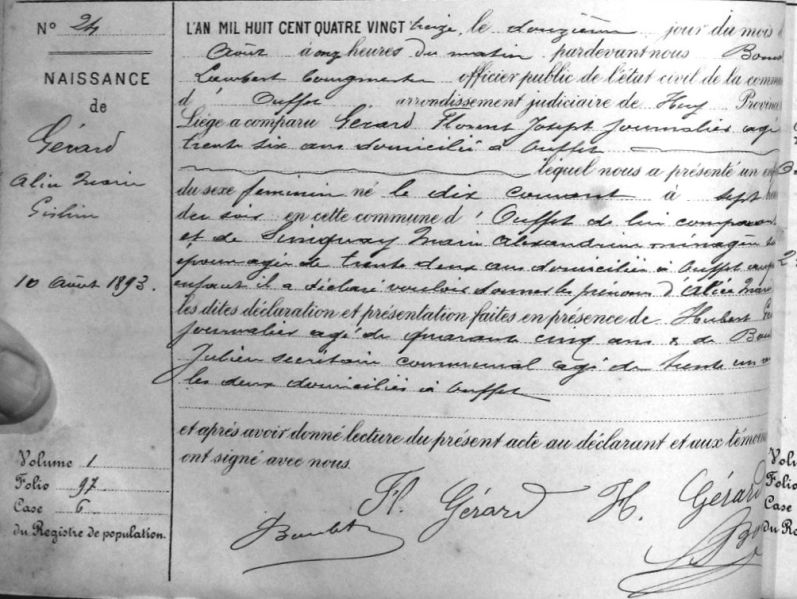 N° 24
NAISSANCE
de
Gérard
Alice Marie
Gisline
10 Août 1893.
Volume 1
Folio 97
Case 6
du Registre de population.
L'AN MIL HUIT CENT QUATRE VINGT treize, le douzième jour du mois d
Août à onze heures du matin pardevant nous
Lambert bourgmestre officier public de l'état civil de la commu
d' Ouffet arrondissement judiciaire de Huy Provinc
Liège a comparu Gérard Florent Joseph journalier agé
trente six ans domicilié à Ouffet
lequel nous a présenté un enf
du sexe feminin né le dix courant à sept heu
du soir en cette commune d' Ouffet de lui comparant
et de Marie Alexandrine ménagère
épouse agée de trente deux ans domiciliée à Ouffet auquel
enfant il a déclaré vouloir donner les prénoms d'Alice Marie
les dites déclaration et présentation faites en présence de Hubert
journalier agé de quarante cinq ans & de
Julien secrétaire communal agé de trente un
les deux domiciliés à Ouffet
et après avoir donné lecture du présent acte au déclarant et aux témoins
ont signé avec nous.
Fl. Gérard H. Gérard